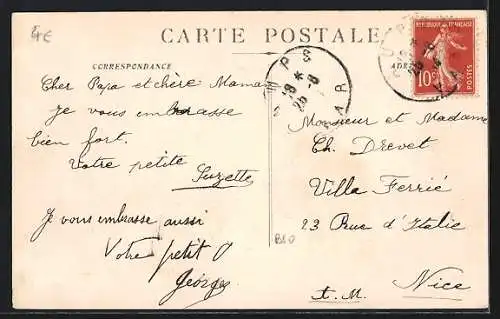 CARTE POSTALE
CORRESPONDANCE
Cher Papa et chère Maman
je vous embrasse
bien fort.
Votre petite
Suzette
Je vous embrasse aussi
Votre petit
Georges
REPUBLIQUE FRANÇAISE
10c
POSTES
Monsieur et Madame
Ch. Drevet
Villa Ferrié
23 Rue d'Italie
Nice
A.M.